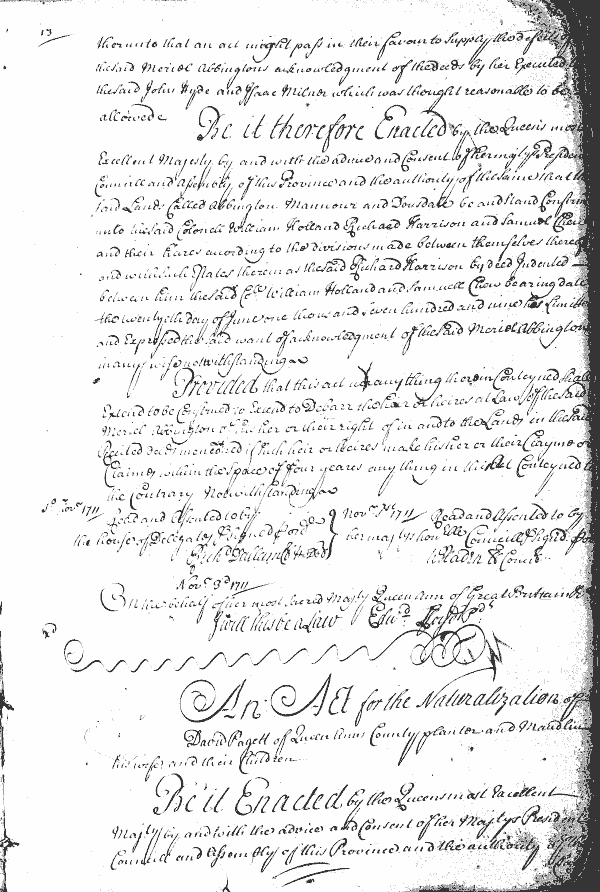 13
thereunto that an act might pass in their favour to supply the defect of
the said Meriel Abbingtons acknowledgment of the deeds by her Executed
the said John Hyde and Isaac Milner which was thought reasonable to be
allowed
Be it therefore Enacted by the Queen's most
Excellent Majesty by and with the advice and Consent of her Majtys President
Councill and Assembly of this Province and the authority of the same that the
said Lands Called Abbington Mannour and Dousdale be and stand Confirm
unto the said Colonell William Holland Richard Harrison and Samuel Chew
and their heires according to the divisions made between themselves thereof
and with such Estates therein as the said Richard Harrison by deed Indented
between him the said Coll William Holland and Samuell Chew bearing date
the twentyeth day of June one thousand seven hundred and nine has Limitted
and Expressed the said want of acknowledgment of the said Meriel Abbington
in any wise notwithstanding
Provided that this act nor any thing therein Conteyned shall
Extend to be Construed to Extend to Debarr the heir or heires at Law of the said
Meriel Abbington of his her or their right of in and to the Lands in the said
Recited deeds menconed if such heir or heires make his her or their Clayme or
Claimes within the space of four yeares any thing in this Act Conteyned to
the Contrary Notwithstanding
Novr 1711 Read and Assented to by
the house of Delegates Signed p ord
Rich Dallam Cl
Novr 1711 Read and Assented to by
her majtys hon Councill Signed
W Bladen Cl Concil
Novr 3d 1711
On the behalf of her most Sacred Majty Queen Ann of Great Brittain
I will this be a Law Edwd Lloyd Prdt
An Act for the Naturalization of
David Pagett of Queen Anns County planter and Maudlin
his wife and their Children
Be it Enacted by the Queens most Excellent
Majty by and with the advice and Consent of her Majtys President
Councill and Assembly of this Province and the authority of